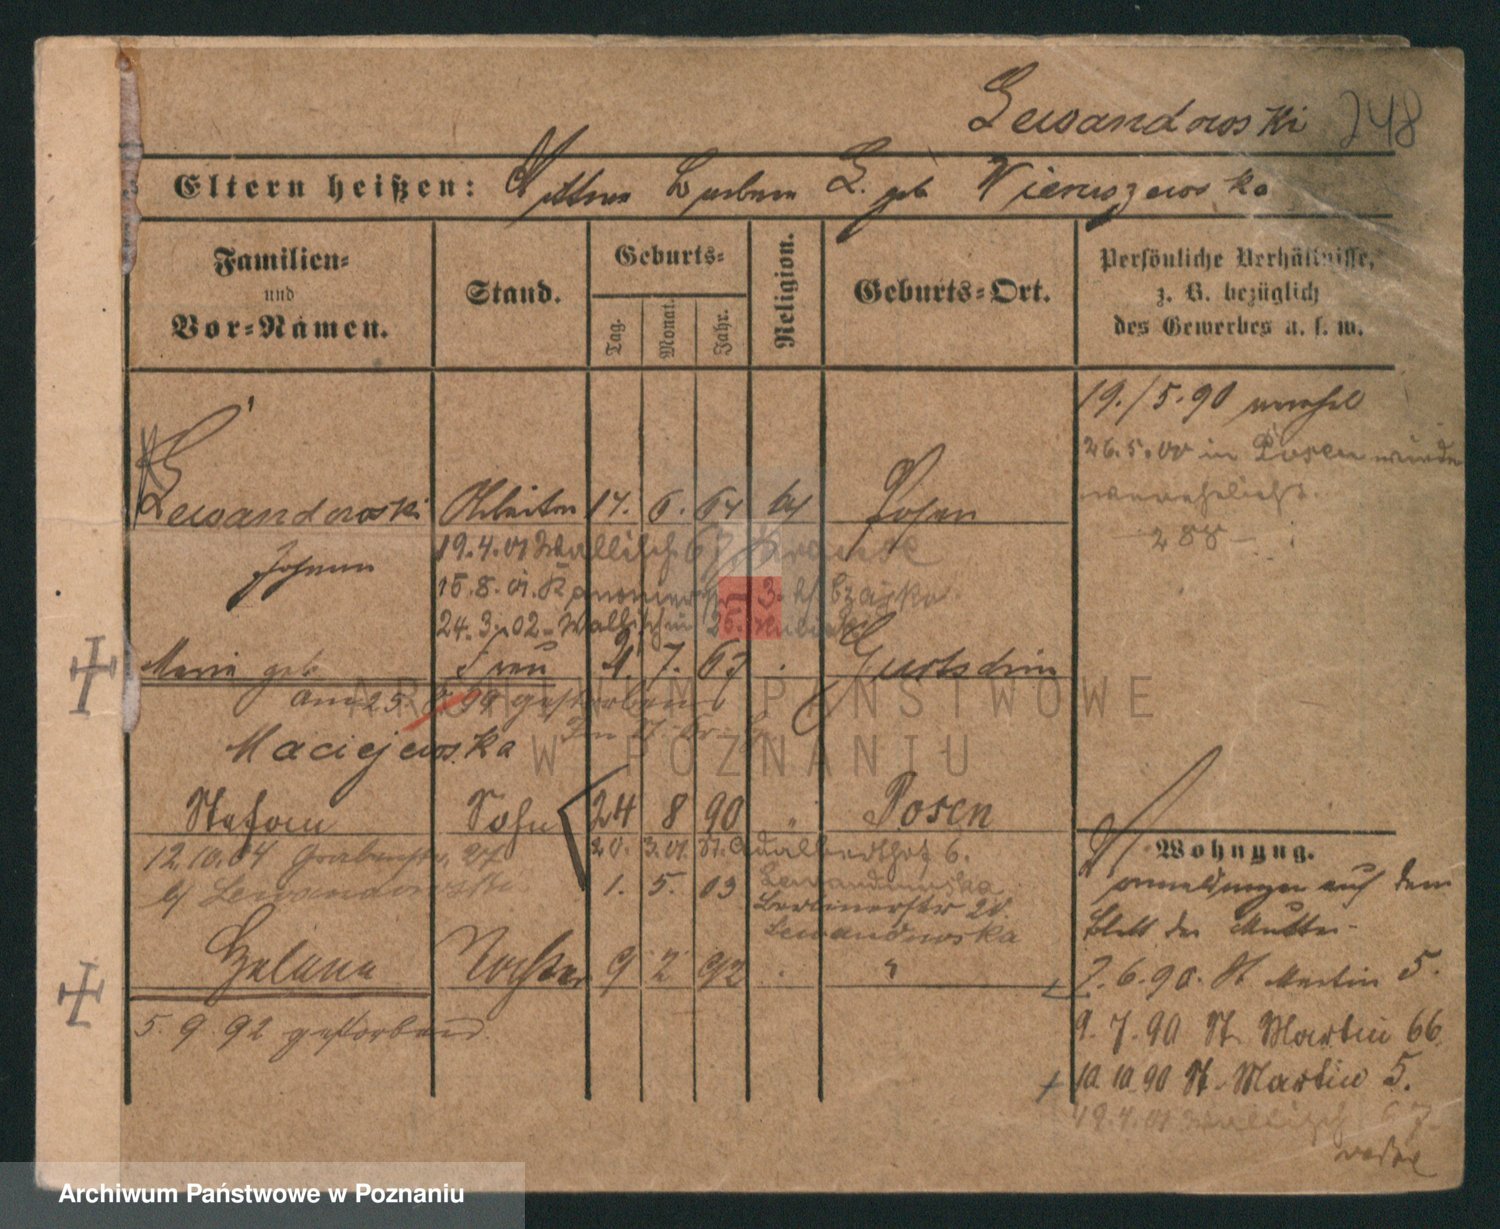 Lewandowski 248
Eltern heißen: Mutter Barbara L. geb Wieruszewska
Familien-
und
Vor-Namen.
Stand.
Geburts-
Tag.
Monat.
Jahr.
Religion.
Geburts-Ort.
Persönliche Verhältnisse,
z. B. bezüglich
des Gewerbes u. s. w.
19./5.90 verehel
26.5.00 in Posen wieder
verehelicht.
- 288 -
Lewandowski Arbeiter 17. 6. 64 kath Posen
Johann
19.4.01 Wallisch. 67
15.8.01. 3. b/ Czajka
24.3.02 - Wallischei
Maria geb Frau 2. 7. 67 .
am 25. 99 gestorben
Maciejewska
Stefan Sohn 24 8 90 " Posen
20. 3. 01 St. Adalbertstr 6.
12.10.04 Grabenstr.
b/ Lewandowski
1. 5. 03 Lewandowska
Berlinerstr 20.
Lewandowska
Helena Tochter 9 2 92 . "
5. 9. 92 gestorben
Wohnung.
Anmeldungen auf dem
Blatt der Mutter
2.6.90. St Martin 5.
9. 7. 90 St. Martin 66
10.10.90 St. Martin 5.
19.4.01 Wallisch 67
ARCHIWUM PAŃSTWOWE
W POZNANIU
Archiwum Państwowe w Poznaniu